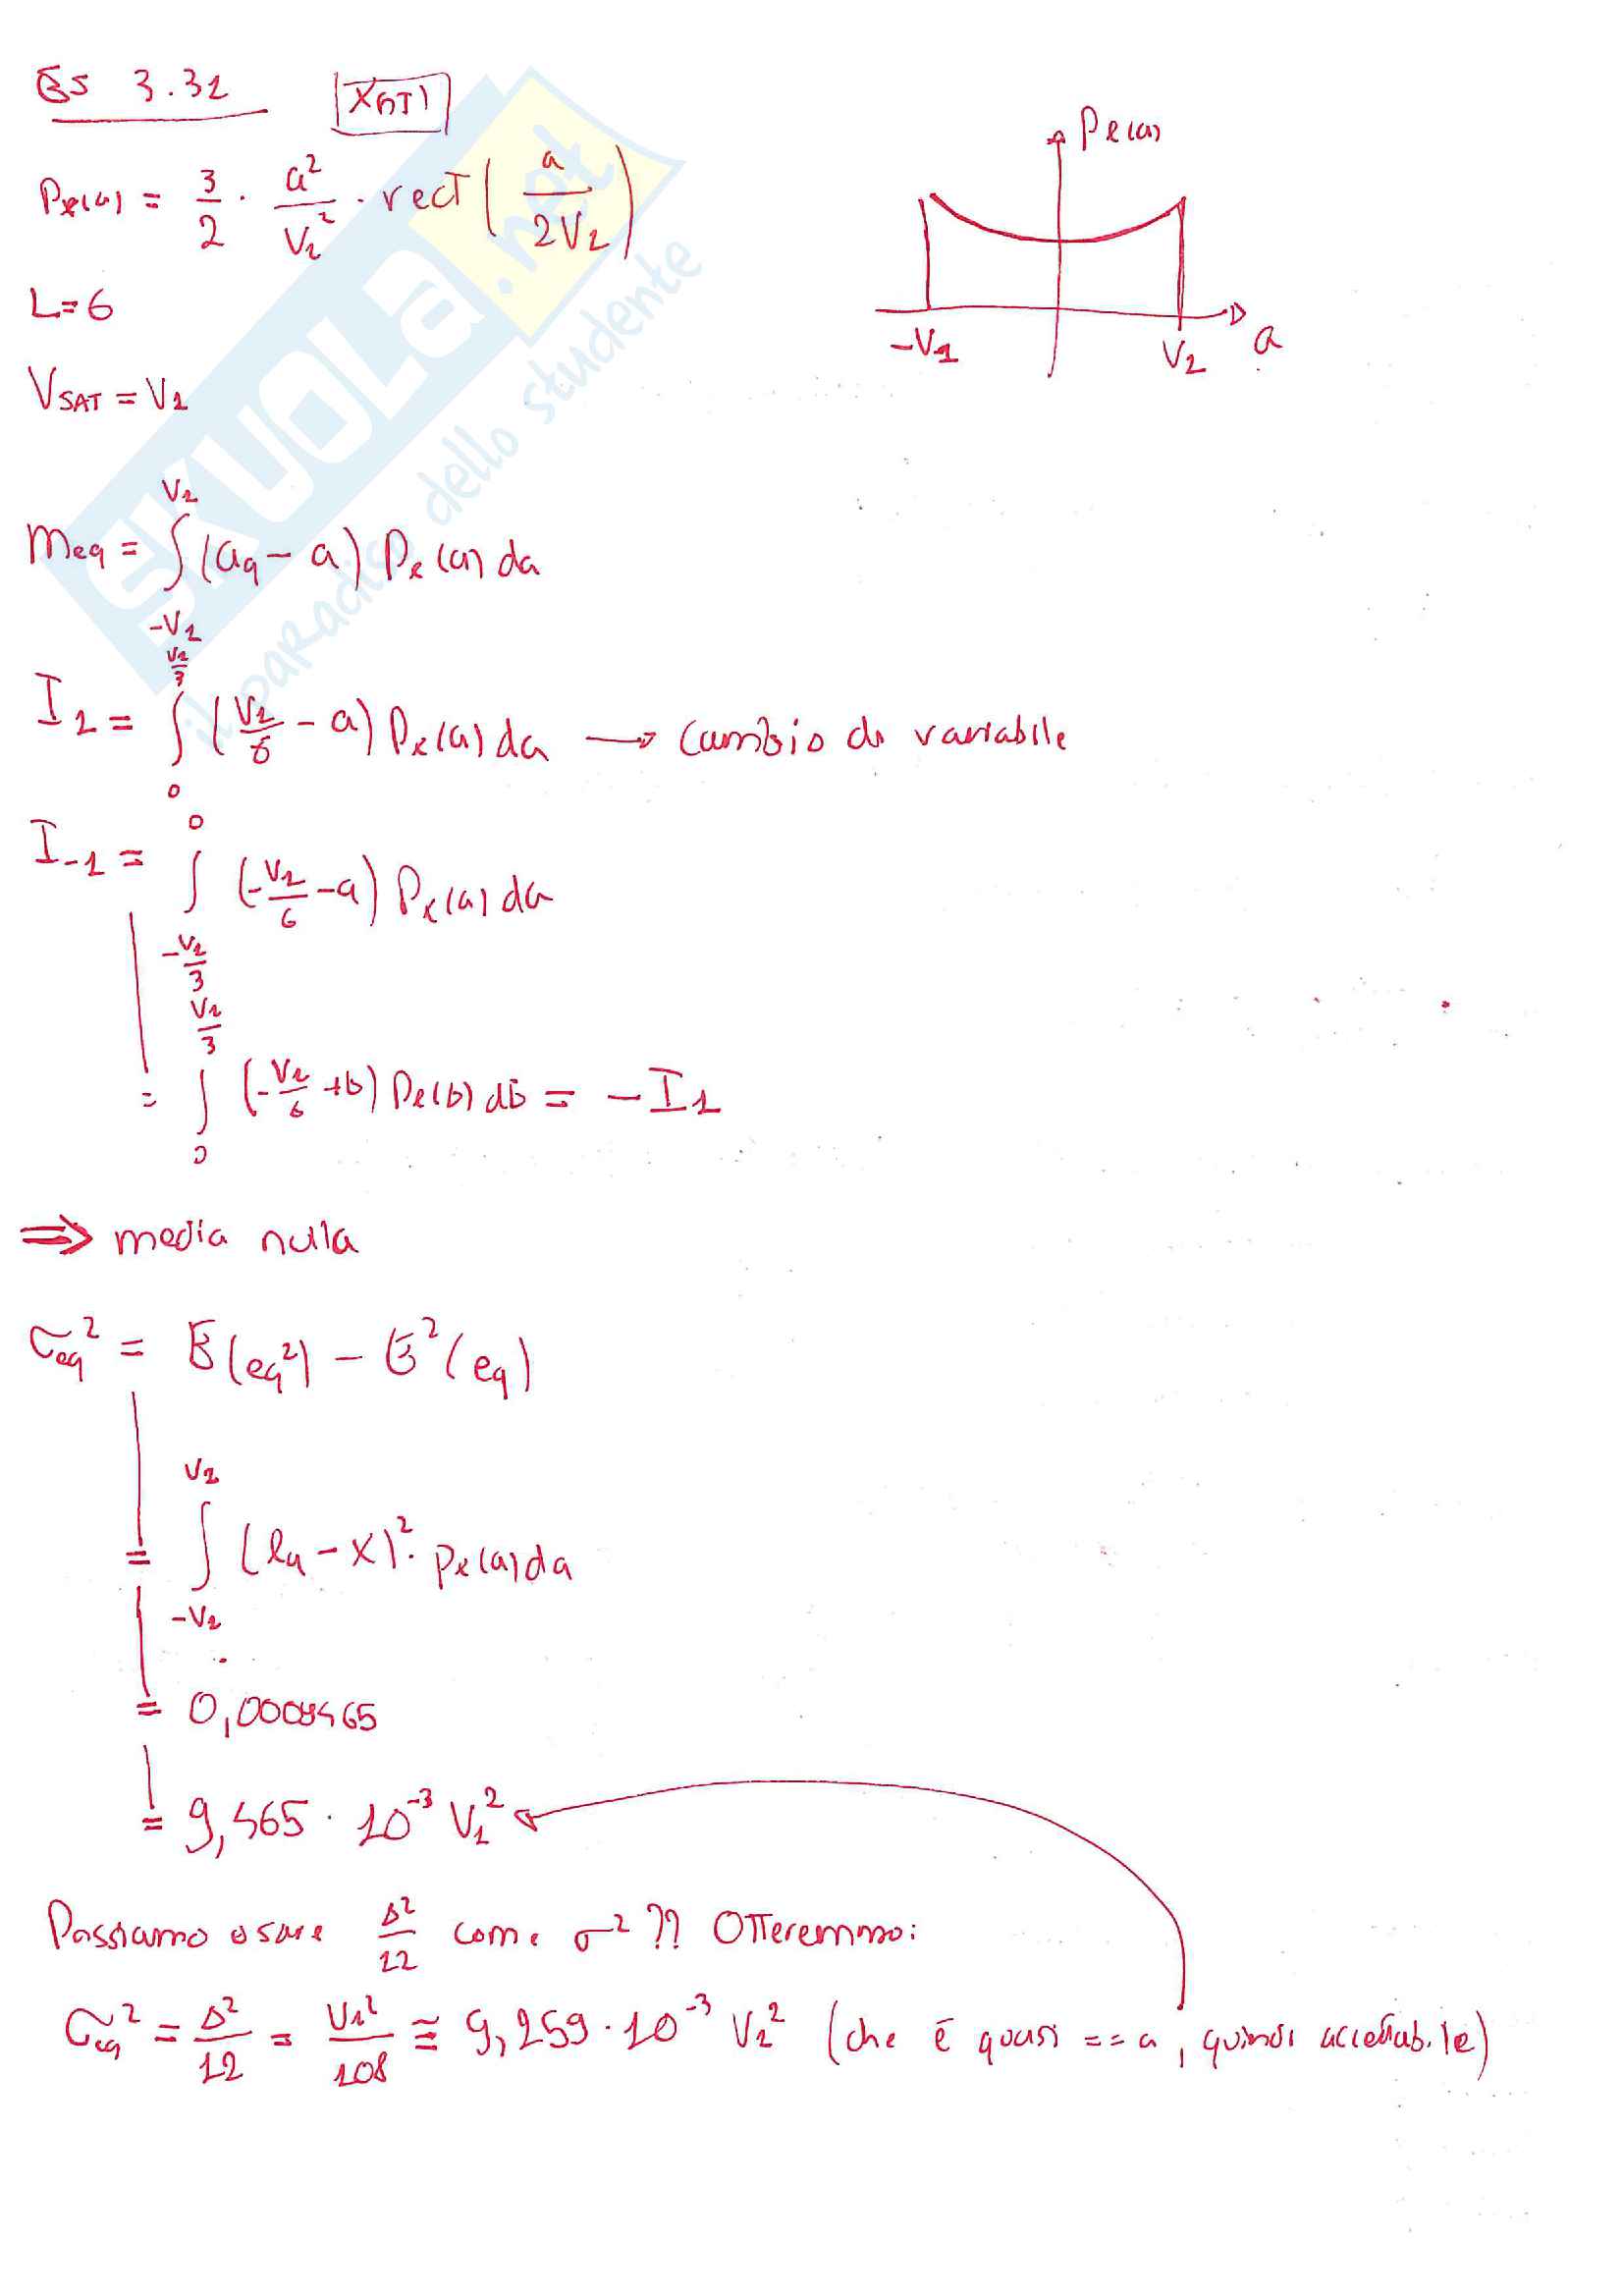 Es 3.31 x(nT)
Px(a) = 3/2 · a²/V1² · rect(a/2V1)
Px(a)
-V1 V1 a
L=6
VSAT = V1
meq = ∫_{-V1}^{V1} (aq - a) Px(a) da
I1 = ∫_0^{V1/3} (V1/6 - a) Px(a) da → cambio di variabile
I-1 = ∫_{-V1/3}^0 (-V1/6 - a) Px(a) da
= ∫_0^{V1/3} (-V1/6 + b) Px(b) db = - I1
⇒ media nulla
σeq² = E(eq²) - E²(eq)
= ∫_{-V1}^{V1} (lq - x)² · Px(a) da
= 9,465 · 10⁻³ V1²
Possiamo usare Δ²/12 come σ² ?? Otteremmo:
σeq² = Δ²/12 = V1²/108 ≅ 9,259 · 10⁻³ V1² (che è quasi == a, quindi accettabile)
SKUOLA.net
il paradiso dello studente